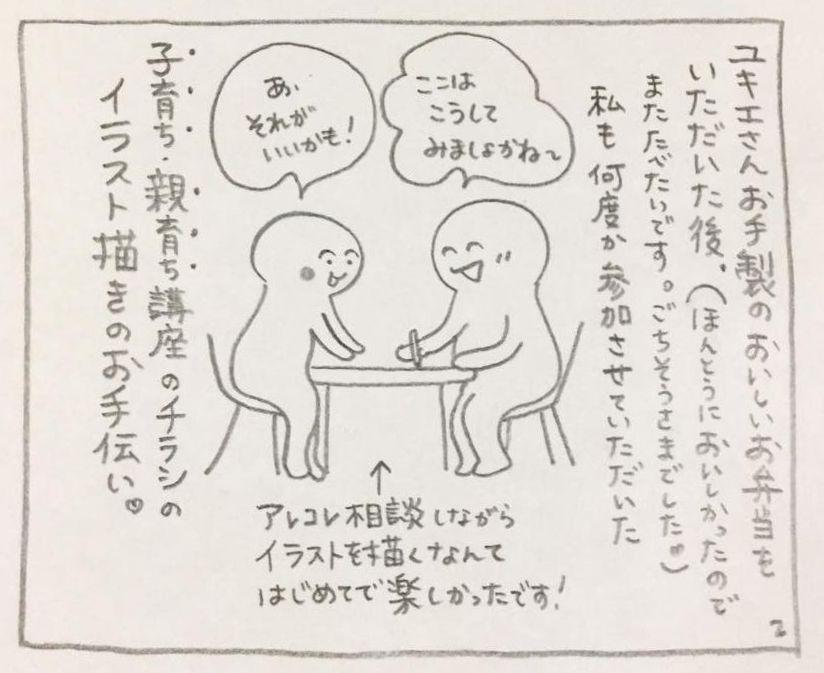 ユキエさんお手製のおいしいお弁当を
いただいた後、(ほんとうにおいしかったので
またたべたいです。ごちそうさまでした♡)
私も何度か参加させていただいた
ここは
こうして
みましょかね〜
あ、
それが
いいかも!
子育ち・親育ち講座のチラシの
イラスト描きのお手伝い♡
↑
アレコレ相談しながら
イラストを描くなんて
はじめてで楽しかったです!
2